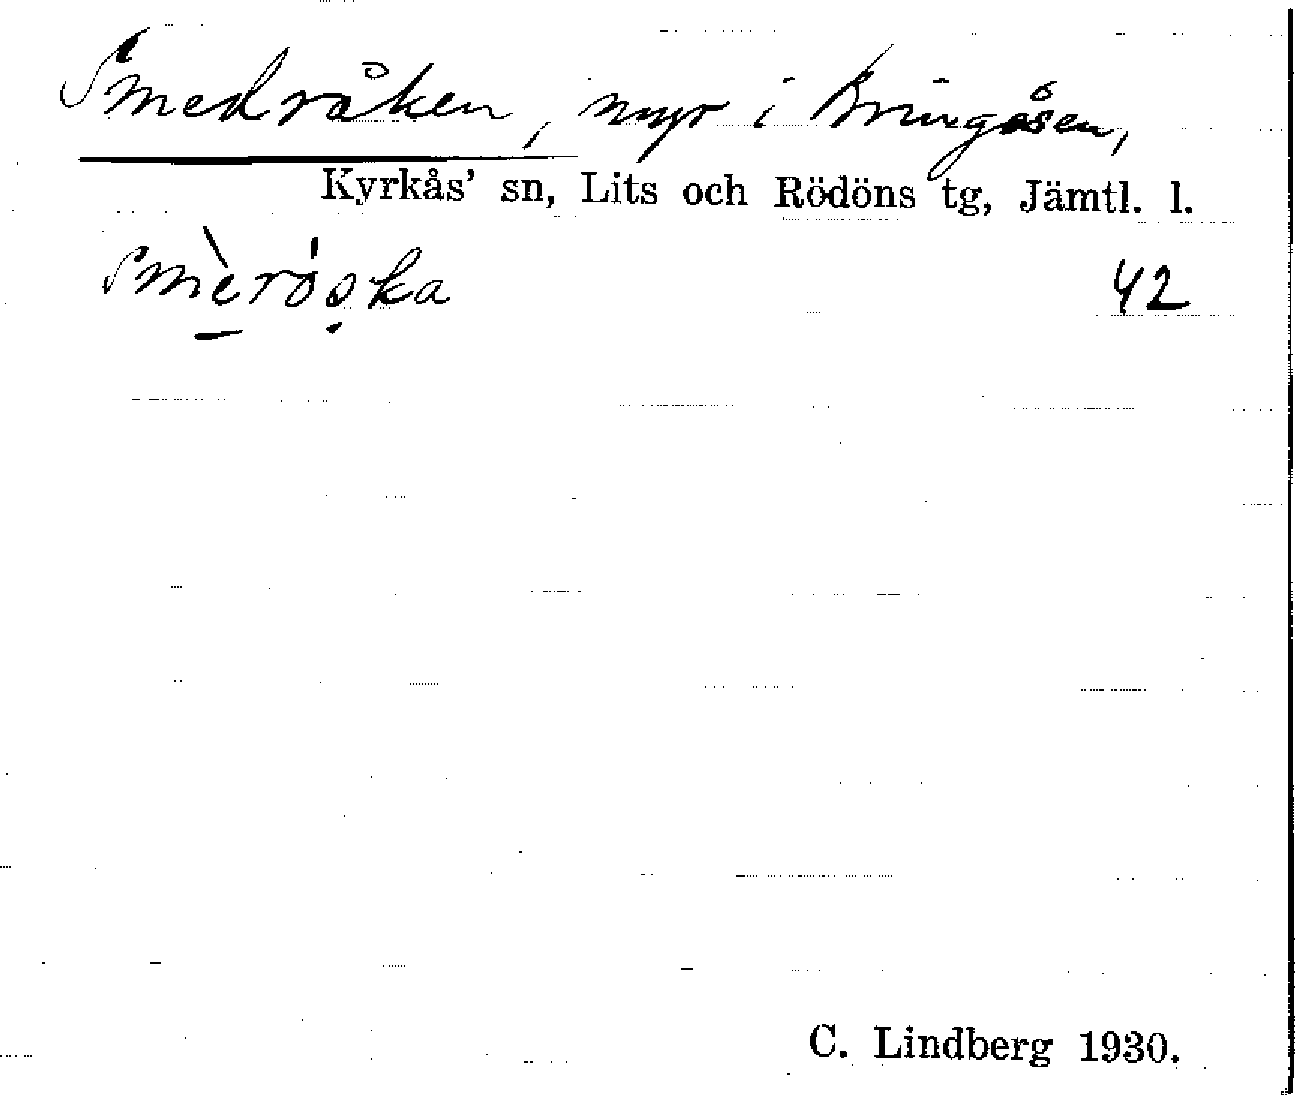 Smedråken, myr i Bringåsen,
Kyrkås' sn, Lits och Rödöns tg, Jämtl. l.
smèróka 42
C. Lindberg 1930.